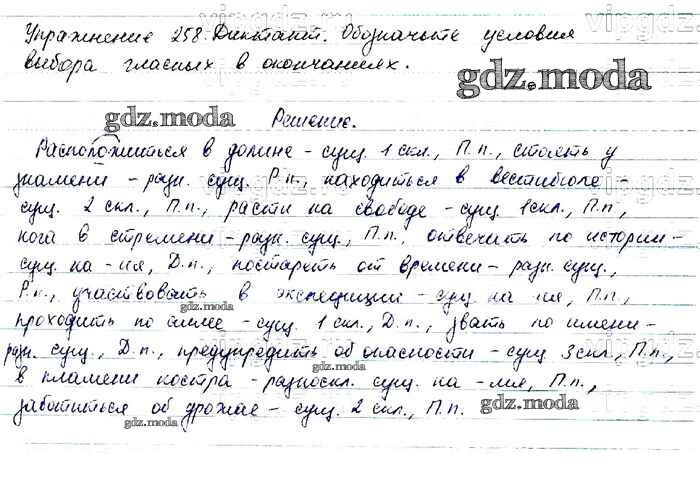 Упражнение 258. Диктант. Обозначьте условия
выбора гласных в окончаниях.
gdz.moda
gdz.moda
Решение.
Расположиться в долине - сущ. 1 скл., П.п., стоять у
знамени - разн. сущ. Р.п., находиться в вестибюле -
сущ. 2 скл., П.п., расти на свободе - сущ. 1 скл., П.п.,
нога в стремени - разн. сущ., П.п., отвечать по истории -
сущ. на -ия, Д.п., постареть от времени - разн. сущ.,
Р.п., участвовать в экспедиции - сущ. на -ия, П.п.,
gdz.moda
проходить по аллее - сущ. 1 скл., Д.п., звать по имени -
разн. сущ., Д.п., предупредить об опасности - сущ 3 скл., П.п.,
gdz.moda
в пламени костра - разноскл. сущ. на -мя, П.п.,
заботиться об урожае - сущ. 2 скл., П.п.
gdz.moda
gdz.moda